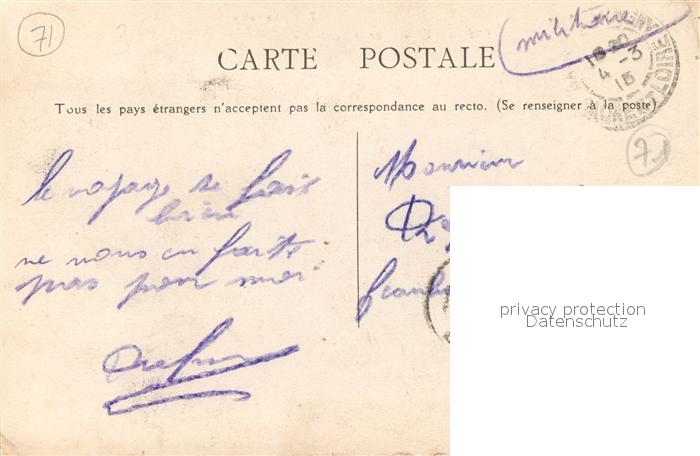 71
(militaire)
CARTE POSTALE
4-3
15
LOIRE
Tous les pays étrangers n'acceptent pas la correspondance au recto. (Se renseigner à la poste)
71
le voyage se fait
bien
ne vous en faite
pas pour moi
Monsieur
privacy protection
Datenschutz